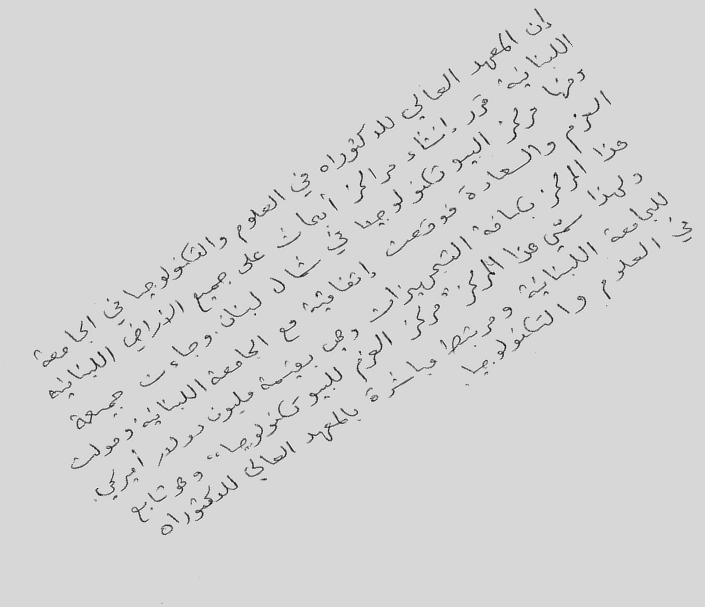 إن المعهد العالي للدكتوراه في العلوم والتكنولوجيا في الجامعة
اللبنانية، قرر إنشاء مراكز أبحاث على جميع الأراضي اللبنانية
ومنها مركز البيوتكنولوجيا في شمال لبنان. وجاءت جمعية
العزم والسعادة فوقعت إتفاقية مع الجامعة اللبنانية ومولت
هذا المركز بكافة التجهيزات وهي بقيمة مليون دولار أميركي.
ولهذا سمّي هذا المركز "مركز العزم للبيوتكنولوجيا"، وهو تابع
للجامعة اللبنانية ومرتبط مباشرة بالمعهد العالي للدكتوراه
في العلوم والتكنولوجيا.